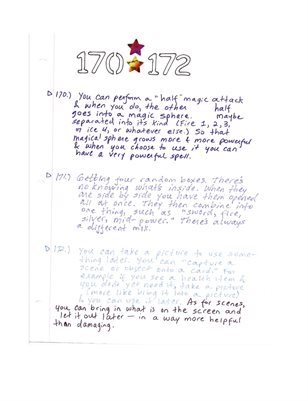 170 172
170.) You can perform a "half" magic attack
& when you do, the other half
goes into a magic sphere. maybe
separated into its kind (Fire 1, 2, 3,
or ice 4, or whatever else.) So that
magical sphere grows more & more powerful
& when you choose to use it you can
have a very powerful spell.
171.) Getting four random boxes. There's
no knowing what's inside. When they
are side by side you have them opened
all at once. They then combine into
one thing, such as "sword, fire,
silver, mid-power." There's always
a different mix.
172.) You can take a picture to use some-
thing later. You can "capture a
scene or object onto a card." For
example if you see a health item &
you don't yet need it, take a picture
(more like bring it into a picture)
& you can use it later. As for scenes,
you can bring in what is on the screen and
let it out later — in a way more helpful
than damaging.